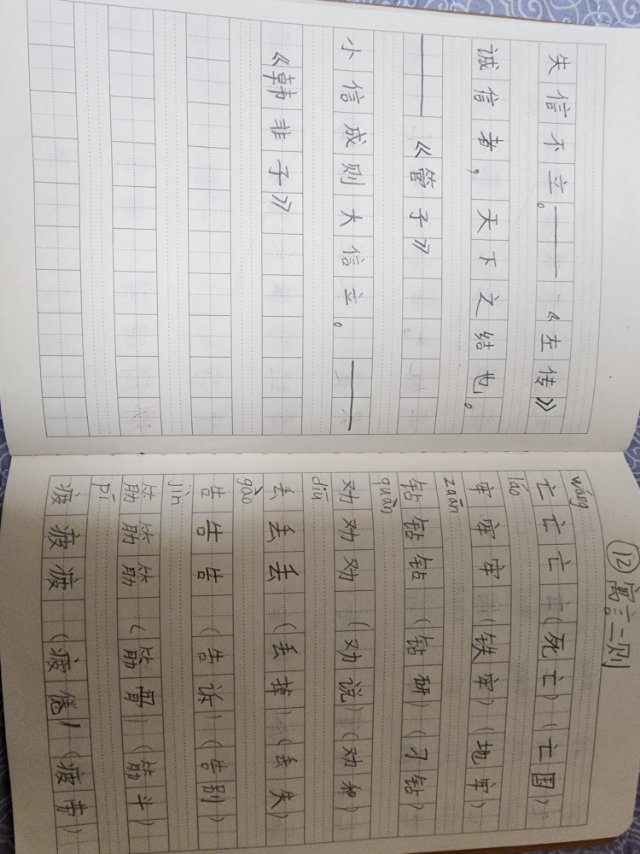 失信不立。——《左传》
诚信者,天下之结也。
——《管子》
小信成则大信立。——
《韩非子》
⑫寓言二则
wáng
亡亡亡(死亡)(亡国)
láo
牢牢牢(铁牢)(地牢)
zuān
钻钻钻(钻研)(刁钻)
quàn
劝劝劝(劝说)(劝和)
diū
丢丢丢(丢掉)(丢失)
gào
告告告(告诉)(告别)
jīn
筋筋筋(筋骨)(筋斗)
pí
疲疲疲(疲倦)(疲劳)